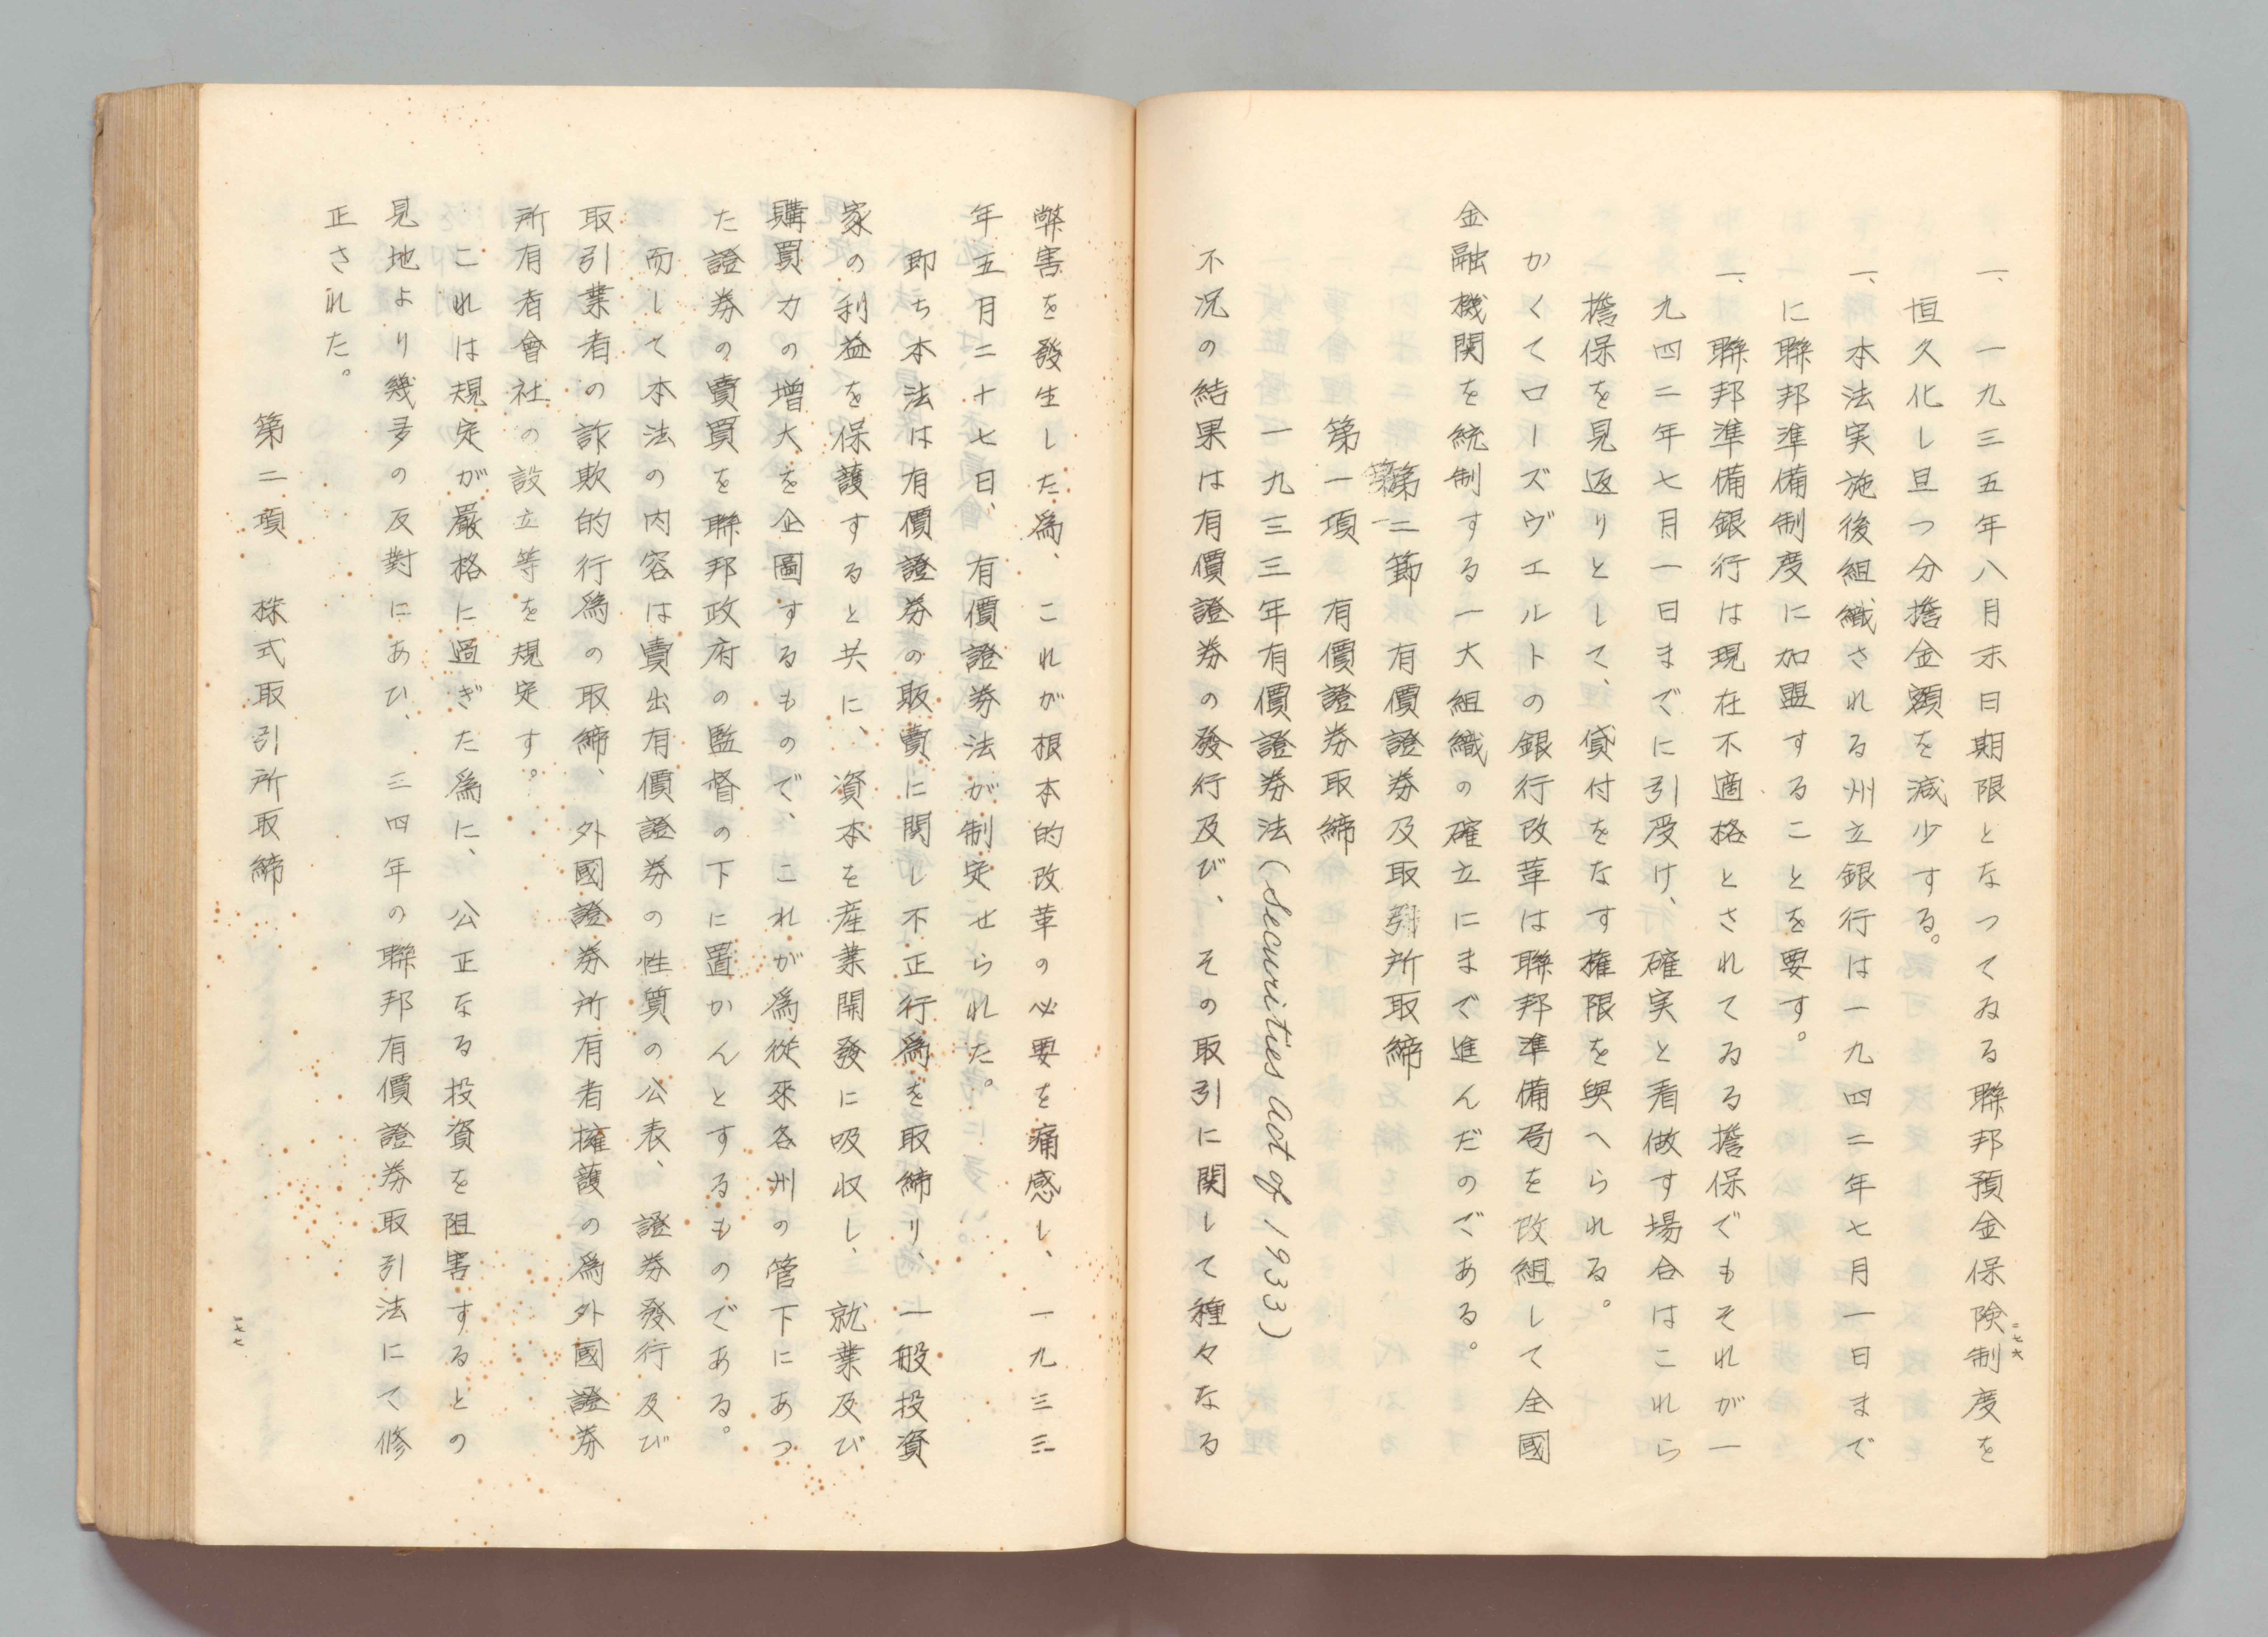 一、一九三五年八月末日期限となつてゐる聯邦預金保険制度を
恒久化し旦つ分擔金額を減少する。
一、本法実施後組織される州立銀行は一九四二年七月一日まで
に聯邦準備制度に加盟することを要す。
一、聯邦準備銀行は現在不適格とされてゐる擔保でもそれが一
九四二年七月一日までに引受け、確実と看做す場合はこれら
擔保を見返りとして、貸付をなす権限を與へられる。
かくてローズヴエルトの銀行改革は聯邦準備局を改組して全國
金融機関を統制する一大組織の確立にまで進んだのである。
第二節 有價證券及取引所取締
第一項 有價證券取締
一九三三年有價證券法(Securities Act of 1933)
不況の結果は有價證券の發行及び、その取引に関して種々なる
二七六
弊害を發生した為、これが根本的改革の必要を痛感し、一九三三
年五月二十七日、有價證券法が制定せられた。
即ち本法は有價證券の販賣に関し不正行為を取締り、一般投資
家の利益を保護すると共に、資本を産業開發に吸収し、就業及び
購買力の増大を企圖するもので、これが為從來各州の管下にあつ
た證券の賣買を聯邦政府の監督の下に置かんとするものである。
而して本法の内容は賣出有價證券の性質の公表、證券發行及び
取引業者の詐欺的行為の取締、外國證券所有者擁護の為外國證券
所有者會社の設立等を規定す。
これは規定が嚴格に過ぎた為に、公正なる投資を阻害するとの
見地より幾多の反對にあひ、三四年の聯邦有價證券取引法にて修
正された。
第二項 株式取引所取締
二七七